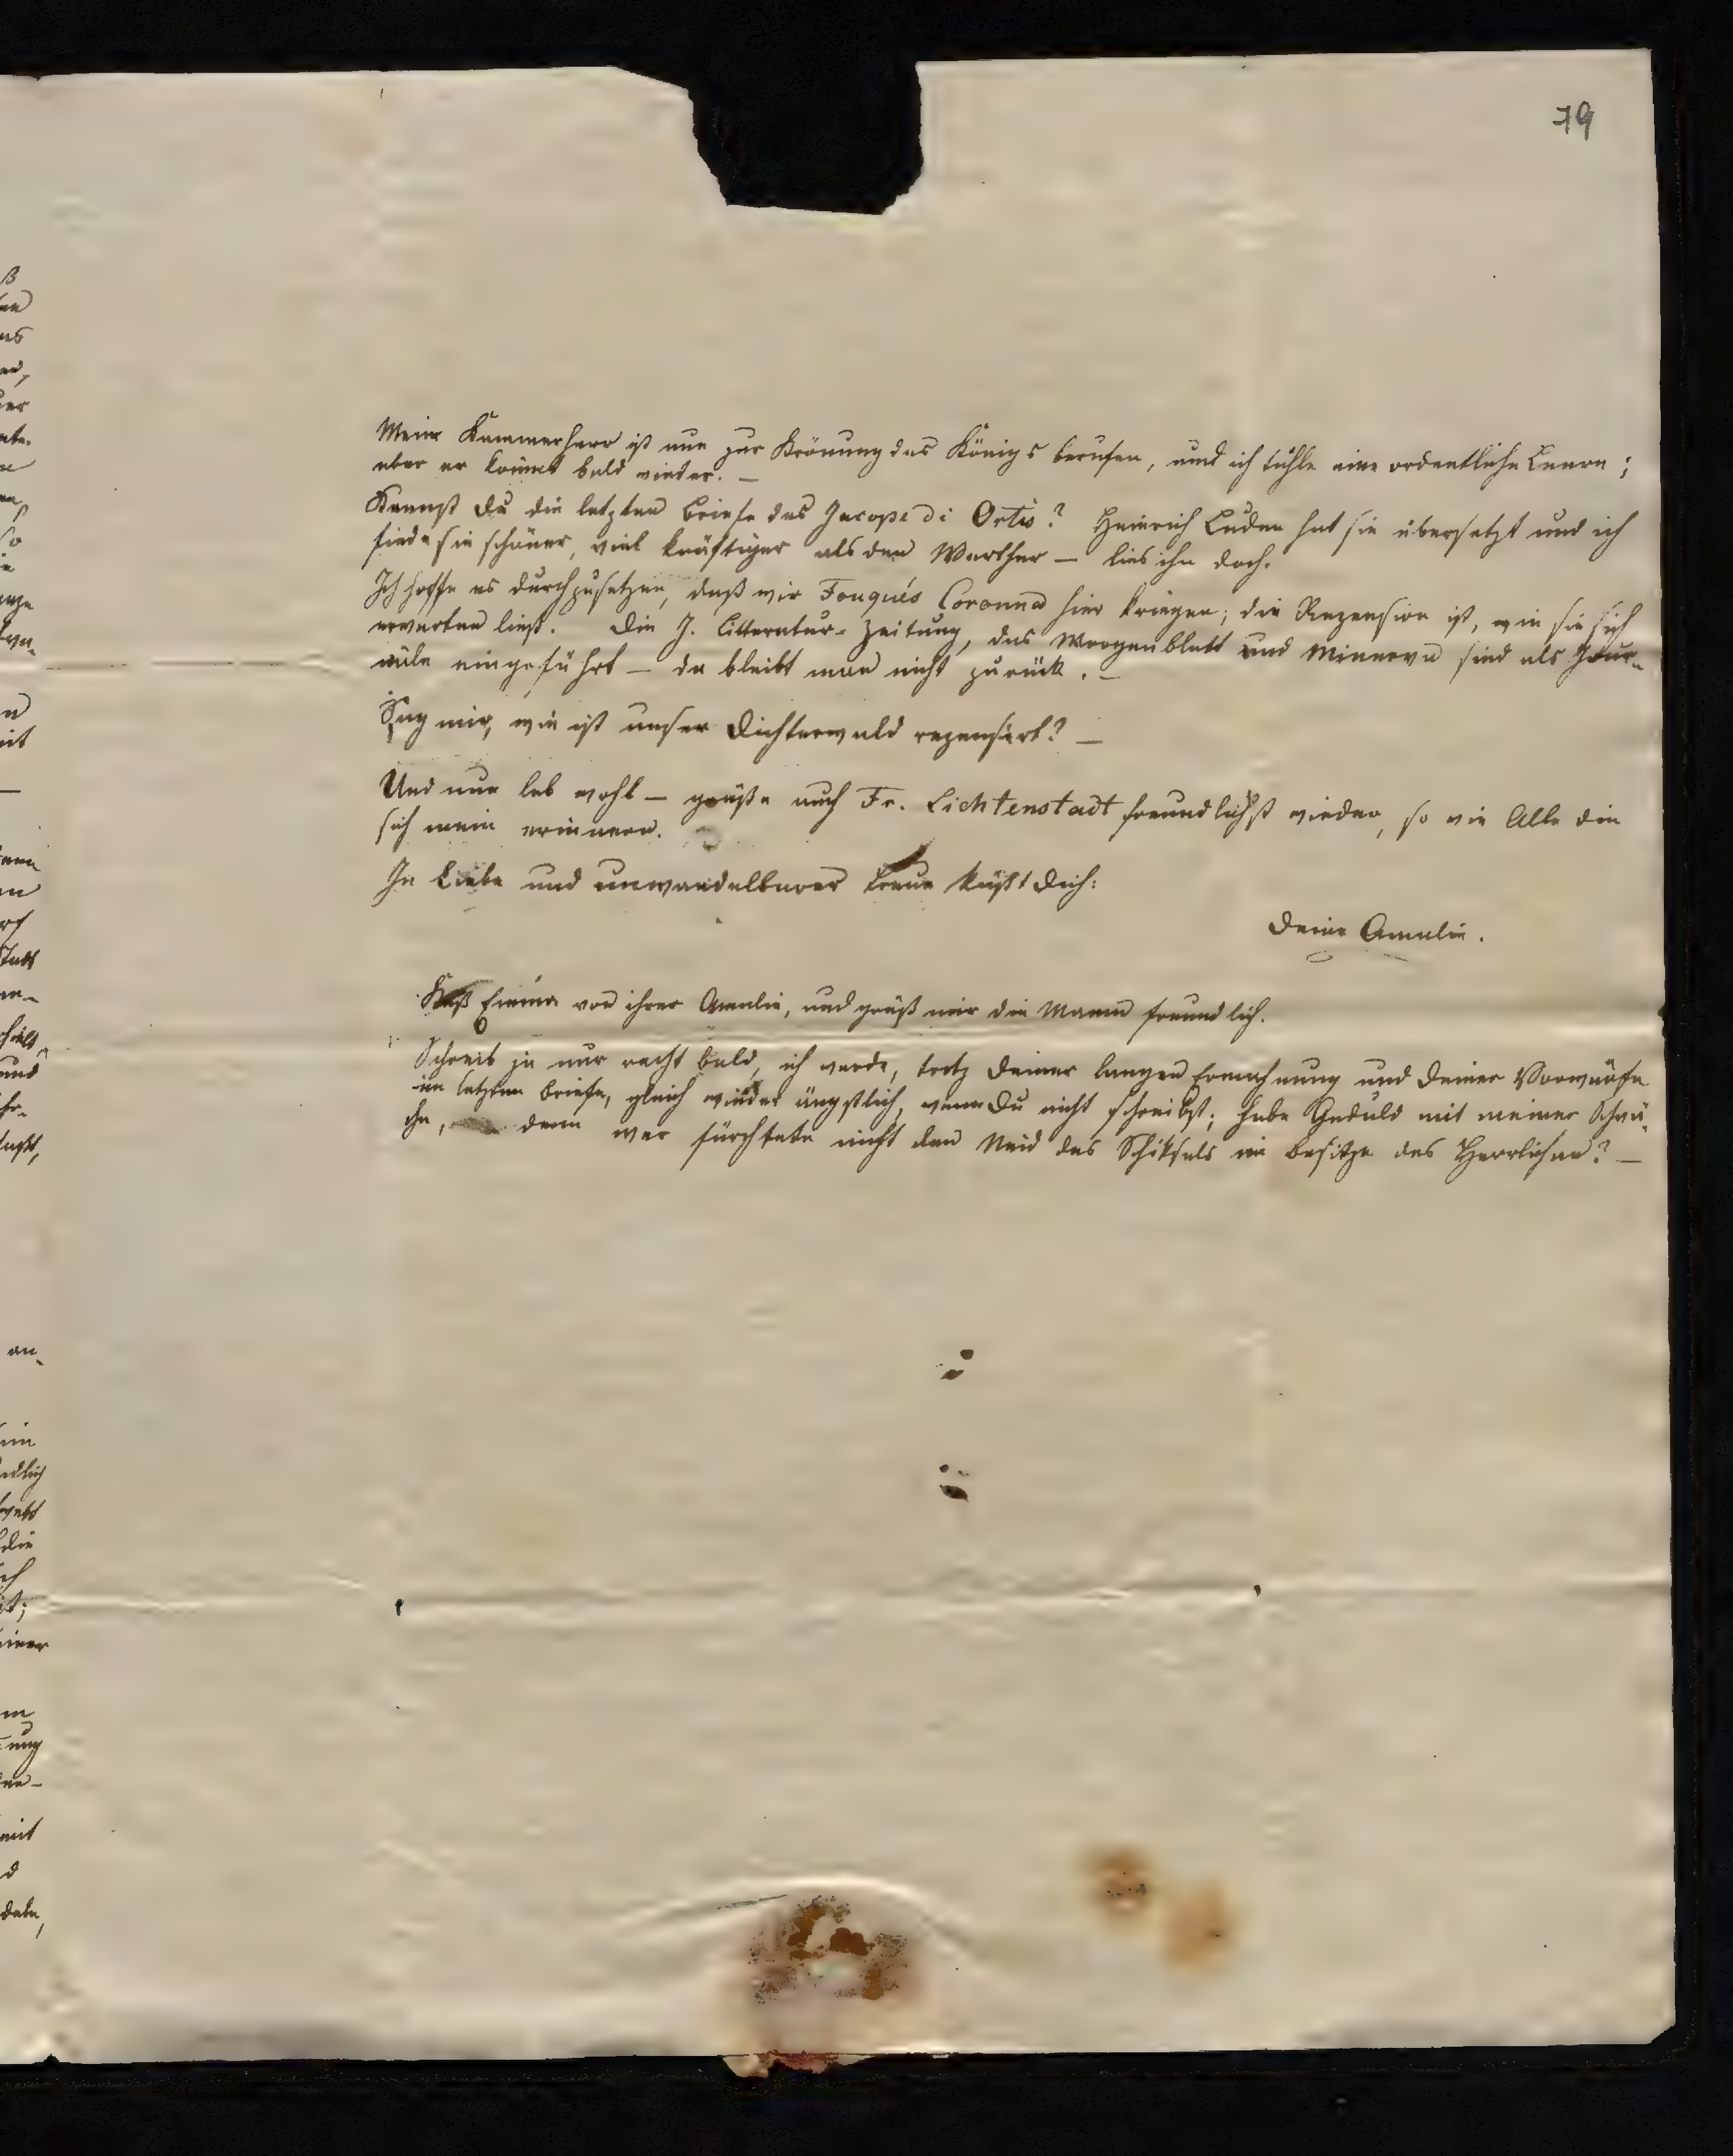 79
Mein Kammerherr ist nun zur Krönung des Königs berufen, und ich fühle eine ordentliche Leere;
aber er kommt bald wieder. —
Kennst du die letzten Briefe des Jacopo di Ortis? Heinrich Luden hat sie übersetzt und ich
finde sie schöner, viel kräftiger als den Werther — lies ihn doch.
Ich hoffe es durchzusetzen, daß wir Fouqués Coronna hier kriegen; die Rezension ist, wie sie sich
erwarten ließ. Die J. Litteratur-Zeitung, das Morgenblatt und Minerva sind als Jour-
näle eingeführt — da bleibt man nicht zurück. —
Sag mir, wie ist unser Dichterwald rezensirt? —
Und nun leb wohl — grüße auch Fr. Lichtenstadt freundlichst wieder, so wie Alle die
sich mein erinnern.
In Liebe und unwandelbarer Treue küßt dich:
Deine Amalie.
Küß Emma von ihrer Amalie, und grüß mir die Mama freundlich.
Schreib ja nur recht bald, ich werde, trotz Deiner langen Ermahnung und Deiner Vorwürfe
im letzten Briefe, gleich wieder ängstlich, wenn Du nicht schreibst; habe Geduld mit meiner Schwä-
che, denn wer fürchtete nicht den Neid des Schiksals im Besitze des Herrlichen? —